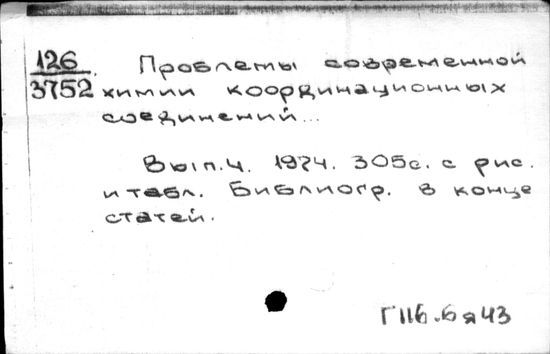 126
3752
Проблемы современной
химии координационных
соединений...
Вып.4. 1974. 305с. с рис.
и табл. Библиогр. в конце
статей.
Г116.6я43